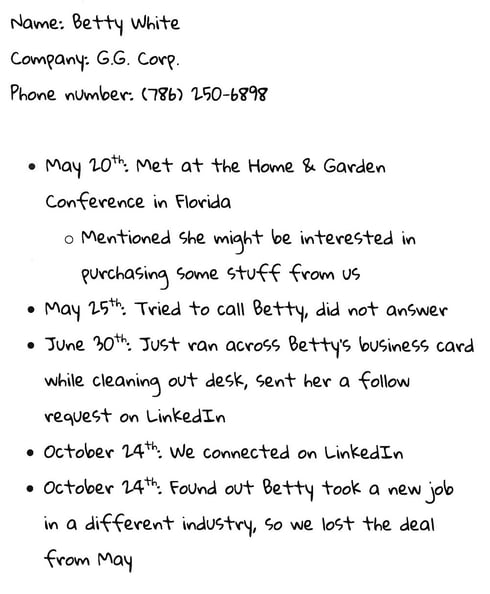 Name: Betty White
Company: G.G. Corp.
Phone number: (786) 250-6898
• May 20th: Met at the Home & Garden
Conference in Florida
o Mentioned she might be interested in
purchasing some stuff from us
• May 25th: Tried to call Betty, did not answer
• June 30th: Just ran across Betty's business card
while cleaning out desk, sent her a follow
request on LinkedIn
• October 24th: We connected on LinkedIn
• October 24th: Found out Betty took a new job
in a different industry, so we lost the deal
from May